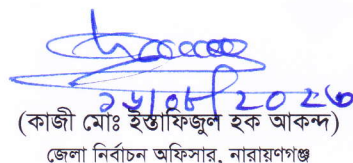 (কাজী মোঃ ইস্তাফিজুল হক আকন্দ)
জেলা নির্বাচন অফিসার, নারায়ণগঞ্জ